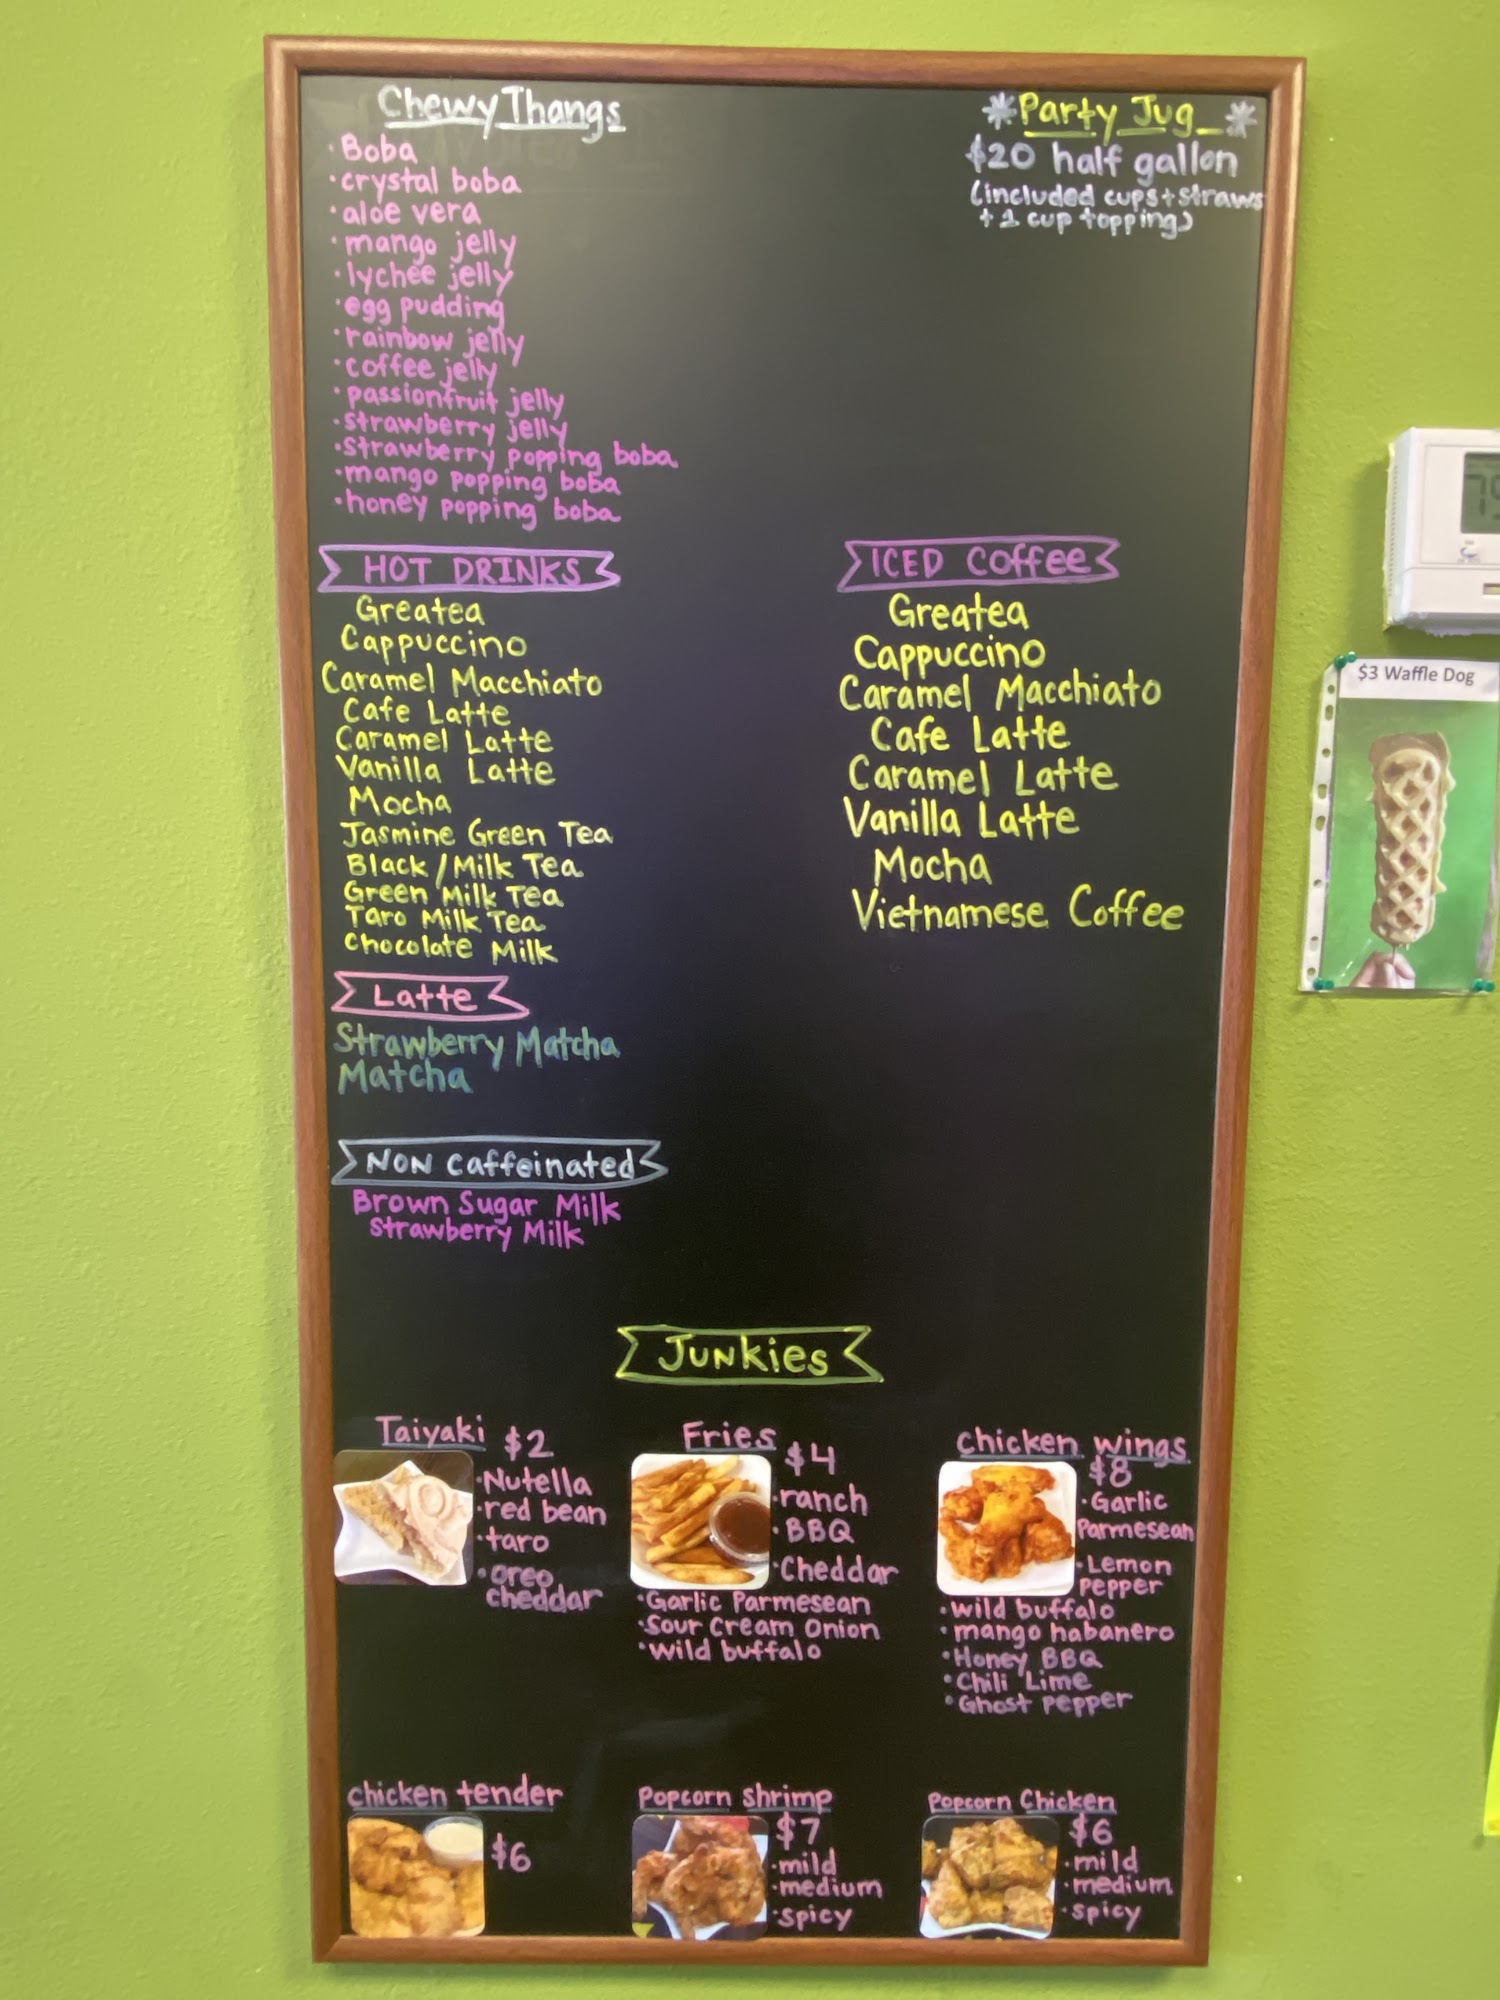 Chewy Thangs
· Boba
· crystal boba
· aloe vera
· mango jelly
· lychee jelly
· egg pudding
· rainbow jelly
· coffee jelly
· passionfruit jelly
· strawberry jelly
· strawberry popping boba
· mango popping boba
· honey popping boba
*Party Jug*
$20 half gallon
(included cups + straws
+ 1 cup topping)
HOT DRINKS
Greatea
Cappuccino
Caramel Macchiato
Cafe Latte
Caramel Latte
Vanilla Latte
Mocha
Jasmine Green Tea
Black / Milk Tea
Green Milk Tea
Taro Milk Tea
Chocolate Milk
ICED Coffee
Greatea
Cappuccino
Caramel Macchiato
Cafe Latte
Caramel Latte
Vanilla Latte
Mocha
Vietnamese Coffee
Latte
Strawberry Matcha
Matcha
NON Caffeinated
Brown Sugar Milk
Strawberry Milk
JUNKies
Taiyaki
$2
· Nutella
· red bean
· taro
· oreo
cheddar
Fries
$4
· ranch
· BBQ
· Cheddar
· Garlic Parmesean
· Sour Cream Onion
· Wild buffalo
Chicken wings
$8
· Garlic
Parmesean
· Lemon
pepper
· wild buffalo
· mango habanero
· Honey BBQ
· Chili Lime
· Ghost Pepper
chicken tender
$6
Popcorn Shrimp
$7
· mild
· medium
· spicy
Popcorn Chicken
$6
· mild
· medium
· spicy
$3 Waffle Dog